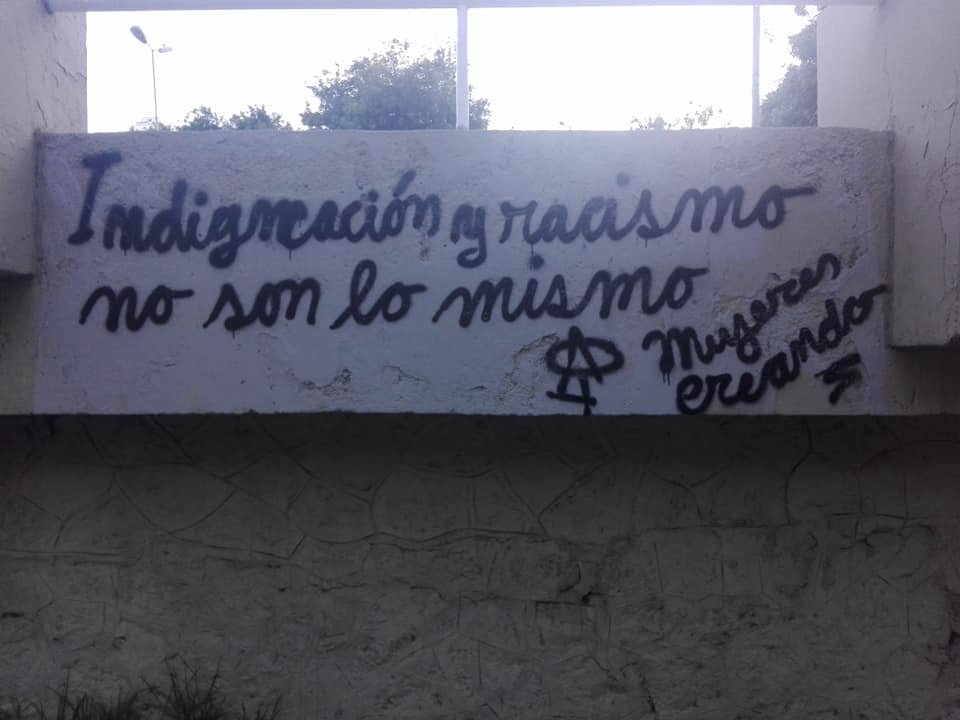 Indignación y racismo
no son lo mismo
Mujeres
creando